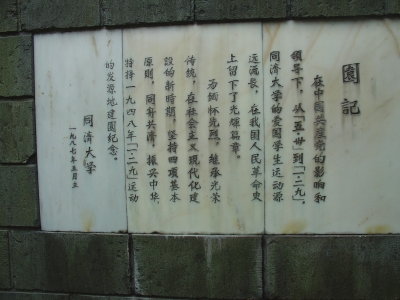 園記
在中国共产党的影响和
領导下，从「五·卅」到「一·二九」，
同济大学的爱国学生运动源
远流长，在我国人民革命史
上留下了光輝篇章。
为緬怀先烈，継承光荣
传统，在社会主义現代化建
設的新时期，坚持四項基本
原則，同舟共济，振兴中华，
特择一九四八年「一·二九」运动
的发源地建園纪念。
同濟大学
一九八七年五月立